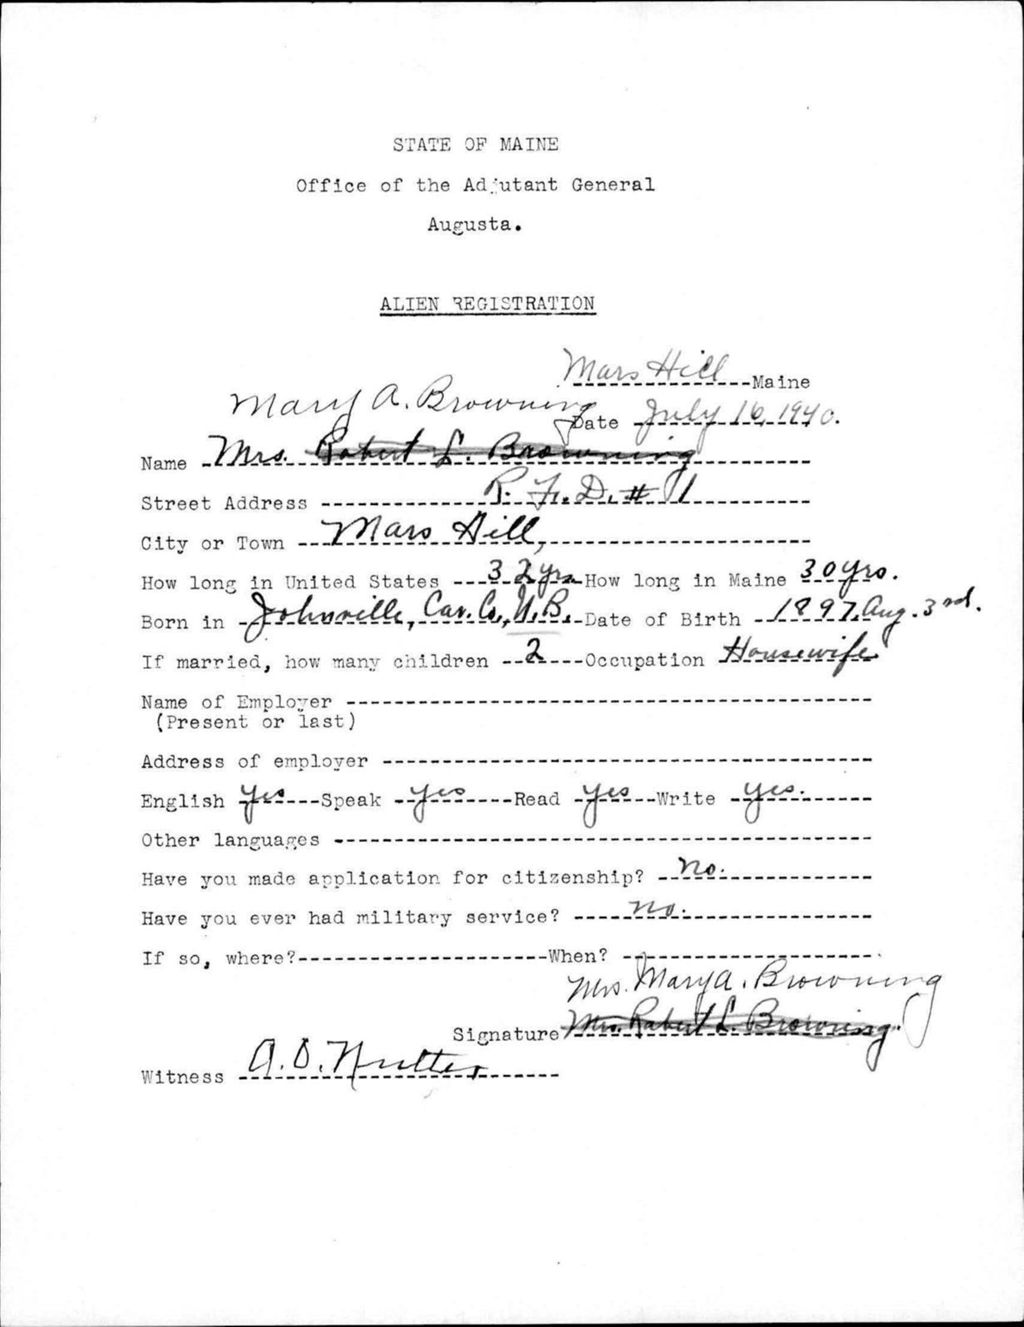 STATE OF MAINE
Office of the Adjutant General
Augusta.
ALIEN REGISTRATION
Mars Hill Maine
Mary A. Browning
Date July 16, 1940.
Name Mrs. Robert L. Browning
Street Address R. F. D. # 1
City or Town Mars Hill,
How long in United States 32 yrs How long in Maine 30 yrs.
Born in Johnville, Car. Co., N. B. Date of Birth 1897 Aug. 3rd.
If married, how many children 2 Occupation Housewife
Name of Employer
(Present or last)
Address of employer
English Yes Speak Yes Read Yes Write Yes.
Other languages
Have you made application for citizenship? No.
Have you ever had military service? No.
If so, where? When?
Mrs. Mary A. Browning
Signature Mrs. Robert L. Browning
Witness A. D. Nutter